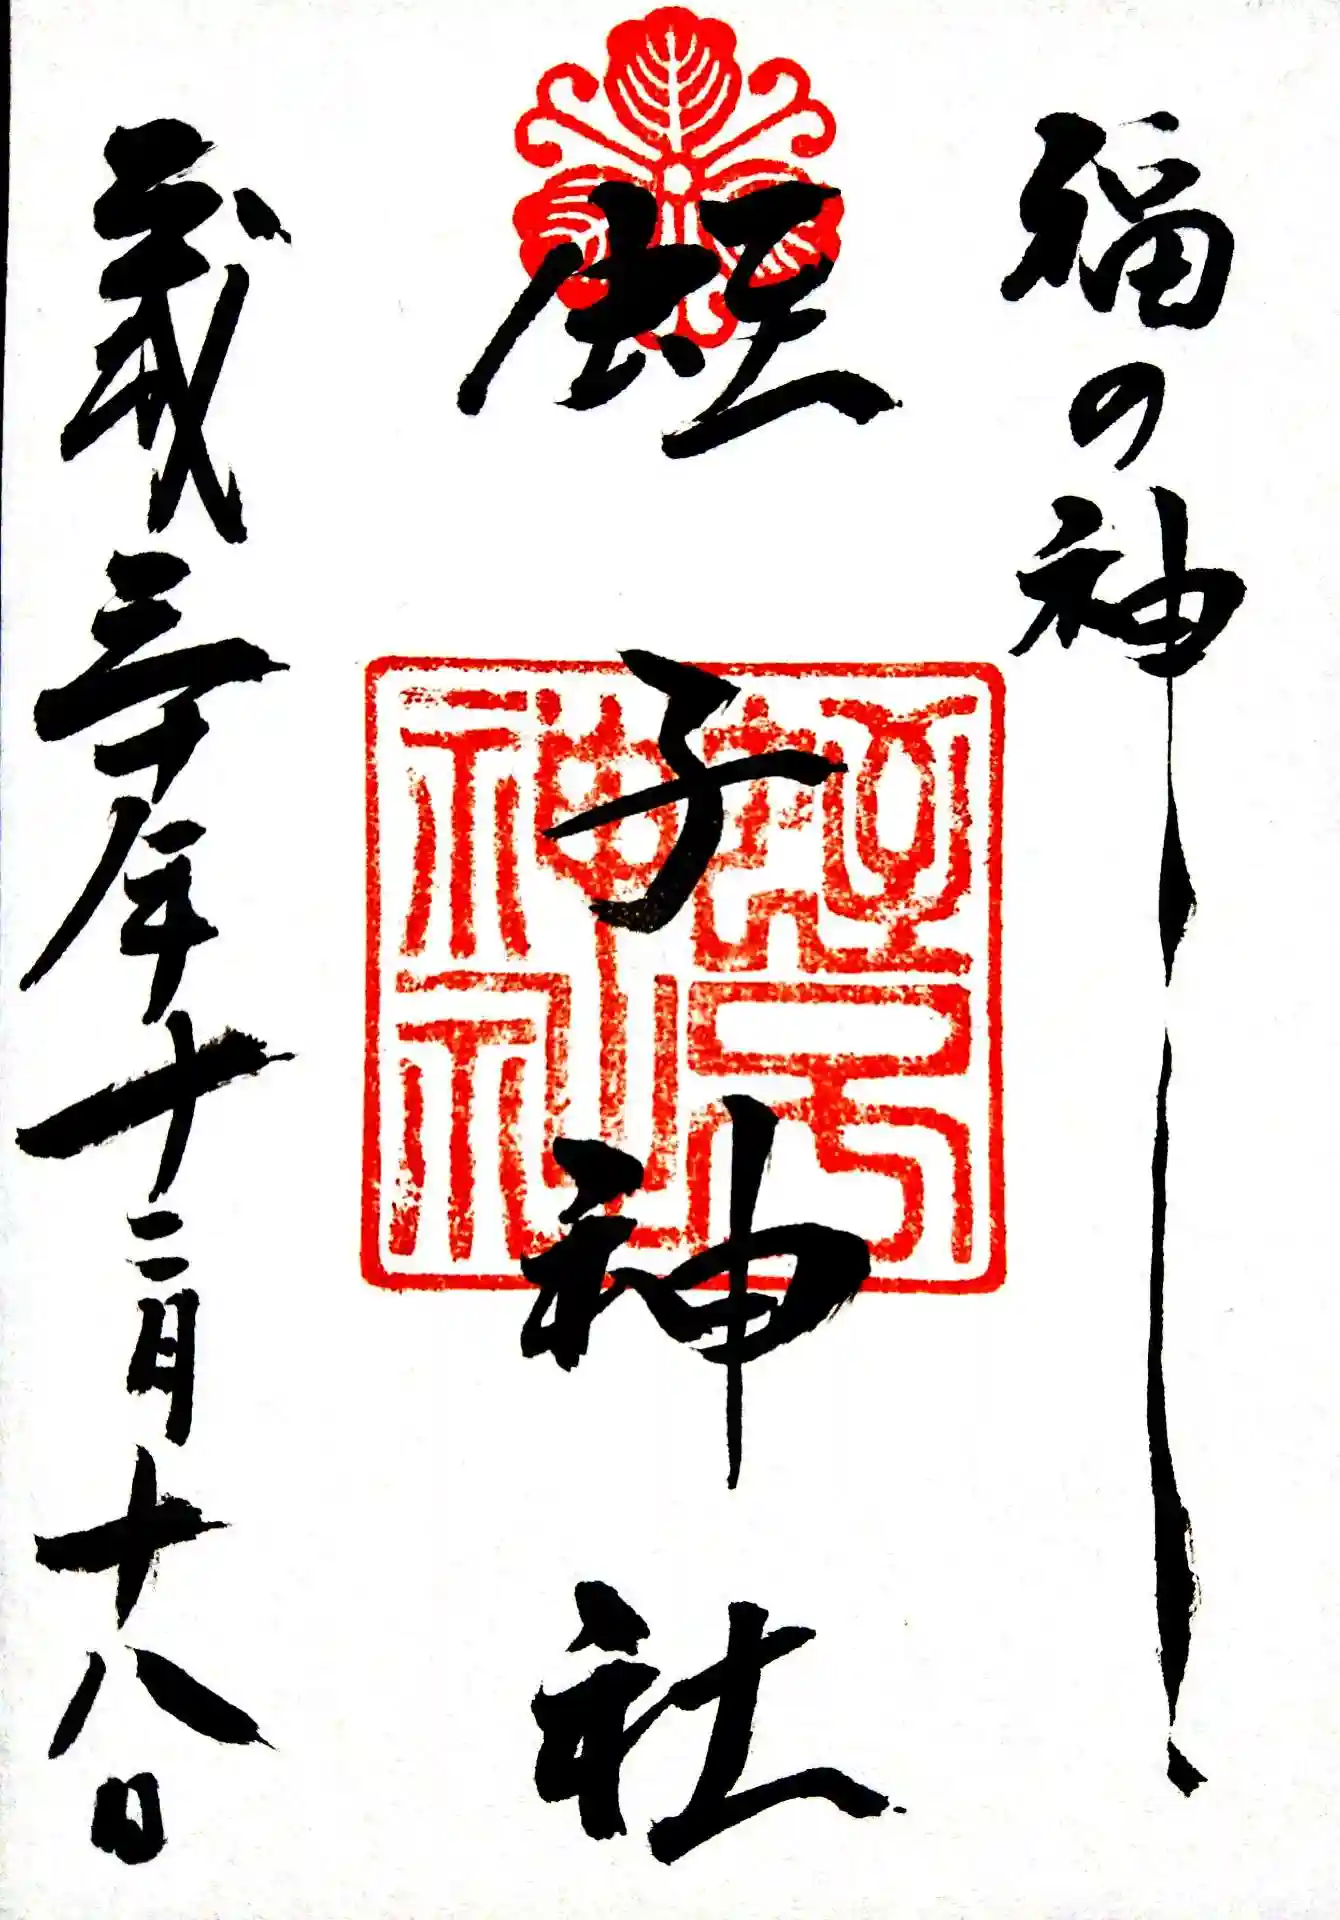 福の神
蛭子神社
蛭子神社
平成三十年十二月十八日